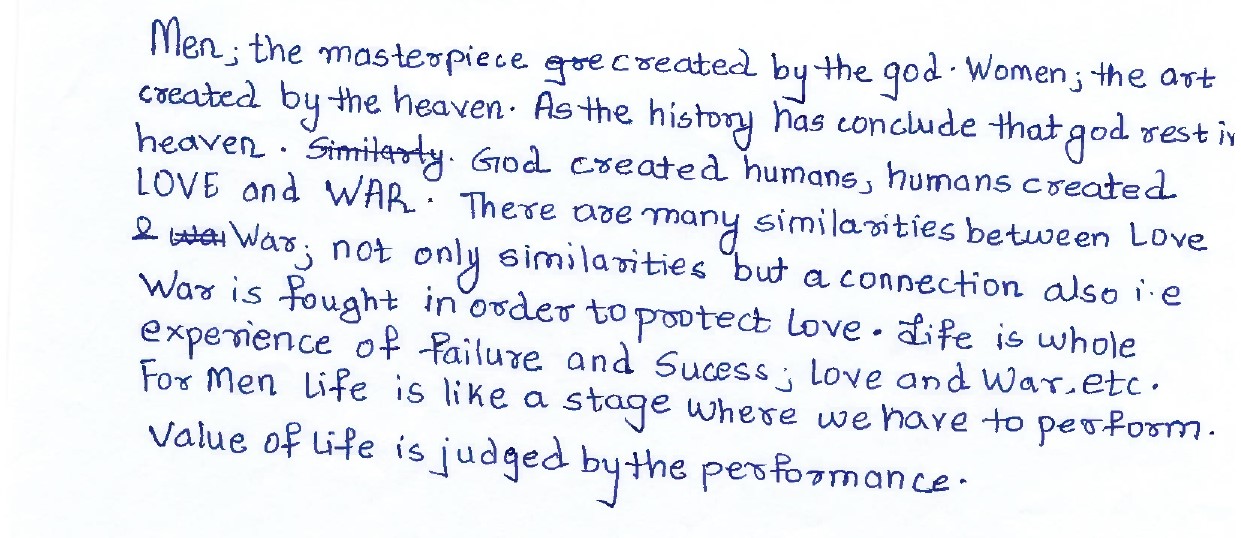 Men; the masterpiece gre created by the god. Women; the art
created by the heaven. As the history has conclude that god rest in
heaven. Similarly. God created humans, humans created
LOVE and WAR. There are many similarities between Love
& wa War; not only similarities but a connection also i.e
War is fought in order to protect love. Life is whole
experience of failure and Sucess; Love and War. etc.
For Men Life is like a stage where we have to perform.
Value of Life is judged by the performance.